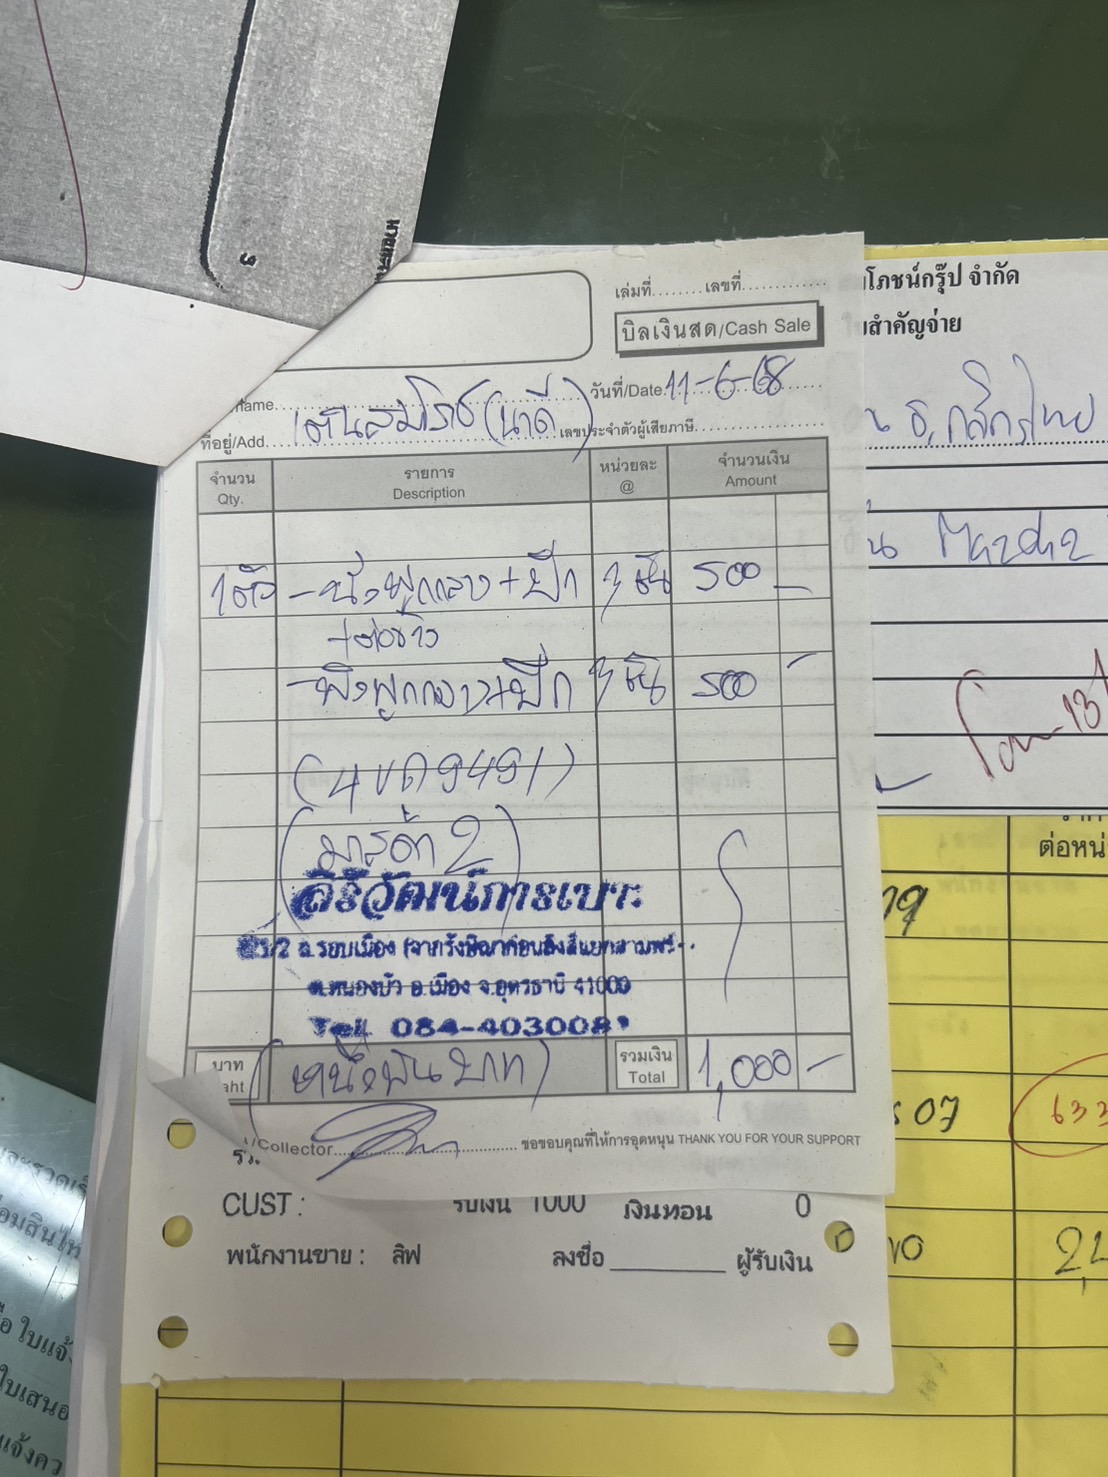 เล่มที่........เลขที่.............
บิลเงินสด/Cash Sale
name
วันที่/Date 11-6-68
เต้นสมโภช (นาดี)
ที่อยู่/Add.
เลขประจำตัวผู้เสียภาษี
จำนวน รายการ หน่วยละ จำนวนเงิน
Qty. Description @ Amount
1ตัว - นั่งฟูกลาง + ปีก 3 ชิ้น 500 -
- พิงฟูกลาง + ปีก 3 ชิ้น 500 -
(4 ขด 9491)
(มาสด้า 2)
ศิริวัฒน์การเบาะ
ถ.รอบเมือง
ต.หนองบัว อ.เมือง จ.อุดรธานี 41000
บาท
(หนึ่งพันบาท)
รวมเงิน
Total
1,000 -
/Collector
ขอขอบคุณที่ให้การอุดหนุน THANK YOU FOR YOUR SUPPORT
CUST : รับเงิน 1000 เงินทอน 0
พนักงานขาย : ลิฟ ลงชื่อ ผู้รับเงิน
โภชน์กรุ๊ป จำกัด
สำคัญจ่าย
ธ.กสิกรไทย
Mazda2
ต่อหน่
07
633